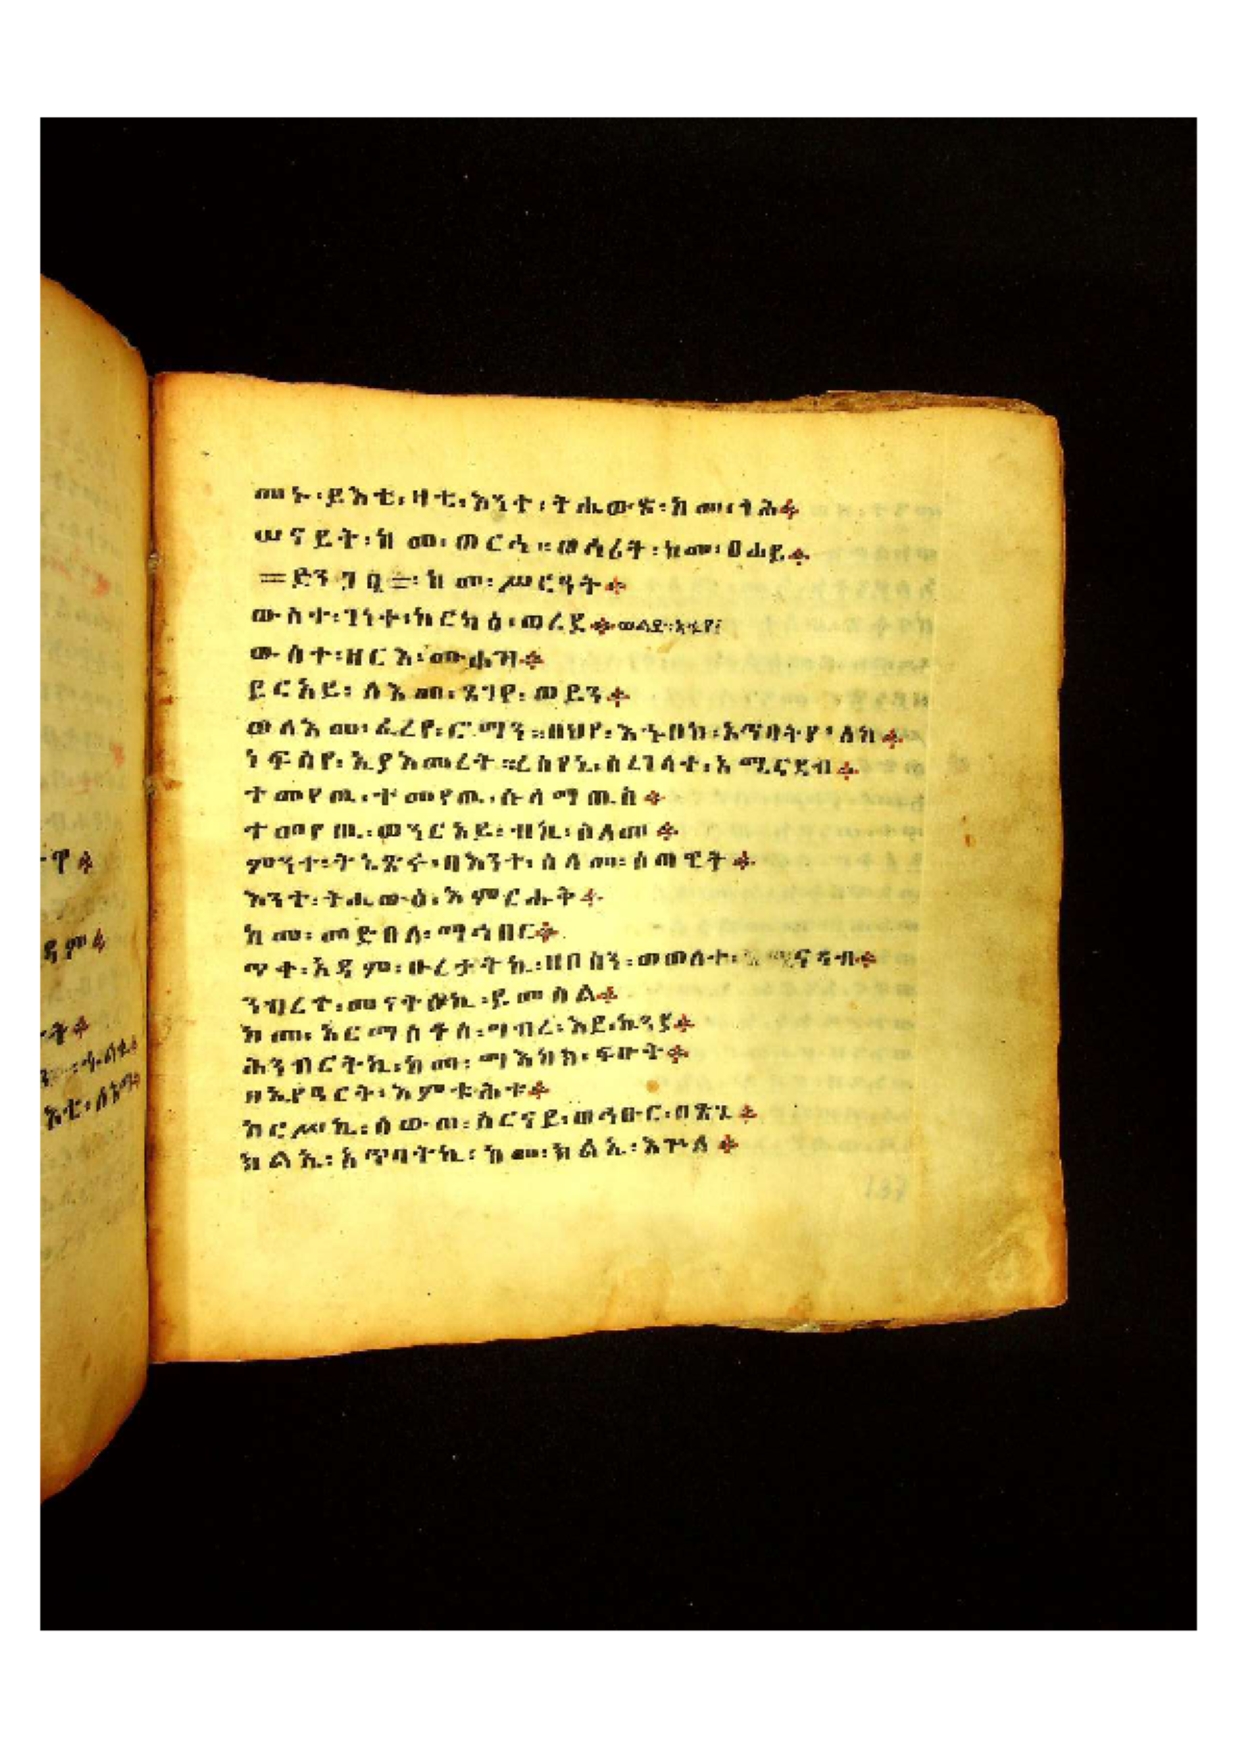 መኑ፡ይእቲ፡ዛቲ፡እንተ፡ትሔውጽ፡ከመ፡ጎሕ፨
ሠናይት፡ከመ፡ወርኅ፡፡ወኅሪት፡ከመ፡ፀሐይ፨
ድንጋፂ፡ከመ፡ሥርዓት፨
ውስተ፡ገነተ፡ከርካዕ፡ወረደ፨
ውስተ፡ዘርአ፡ሙሐዝ፨
ይርአይ፡ለእመ፡ጸገየ፡ወይን፨
ወለእመ፡ፈረየ፡ሮማን፡፡በህየ፡እሁበከ፡አጥባትየ፡ለከ፨
ነፍስየ፡ኢያእመረት፡፡ረሰየኒ፡ሰረገላተ፡አሚናዳብ፨
ተመየጢ፡ተመየጢ፡ሱላማጢስ፨
ተመየጢ፡ወንርአይ፡ብኪ፡ሰላመ፨
ምንተ፡ትኔጽሩ፡በእንተ፡ሰላመ፡ሰጣዊት፨
እንተ፡ትሔውፅ፡እምርሑቅ፨
ከመ፡መድበለ፡ማኅበር፨
ጥቀ፡አዳም፡ሁረታትኪ፡ዘበስን፡ወለተ፡አሚናዳብ፨
ንብረተ፡መናትፁኪ፡ይመስል፨
ከመ፡አርማስቆስ፡ግብረ፡እደ፡ኬንያ፨
ሕንብርትኪ፡ከመ፡ማእከክ፡ፍሁቅ፨
ዘኢየዓርቅ፡እምቱሕተ፨
ከርሥኪ፡ሰውጠ፡ስርናይ፡ወሓፁር፡በጽጌ፨
ክልኤ፡አጥባትኪ፡ከመ፡ክልኤ፡እጕለ፨
137